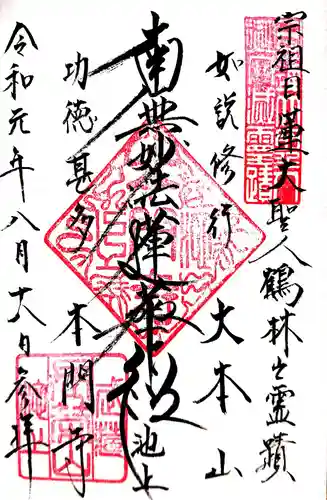 宗祖日蓮大聖人鶴林之霊蹟
如説修行 大本山
南無妙法蓮華経 池上
功徳甚多 本門寺
令和元年八月十八日参拝